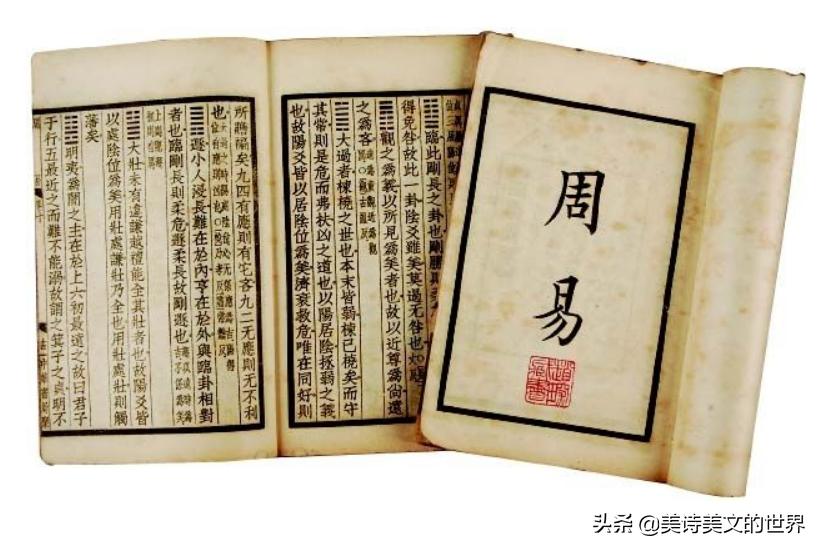 周易
䷒臨此剛長之卦也剛勝則柔
得免咎故此一卦陰爻雖美莫過无咎也
䷓觀之爲義以所見爲美者也故以近尊爲尚遠
之爲吝
䷛大過者棟橈之世也本末皆弱棟已橈矣而守
其常則是危而弗扶凶之道也以陽居陰拯弱之義
也故陽爻皆以居陰位爲美濟衰救危唯在同好則
所贍褊矣九四有應則有它吝九二无應則无不利
也
䷠遯小人浸長難在於內亨在於外與臨卦相對
者也臨剛長則柔危遯柔長故剛遯也
䷡大壯未有違謙越禮能全其壯者也故陽爻皆
以處陰位爲美用壯處謙壯乃全也用壯處壯則觸
藩矣
䷣明夷爲闇之主在於上六初最遠之故曰君子
于行五最近之而難不能溺故謂之箕子之貞明不
头条 @美诗美文的世界